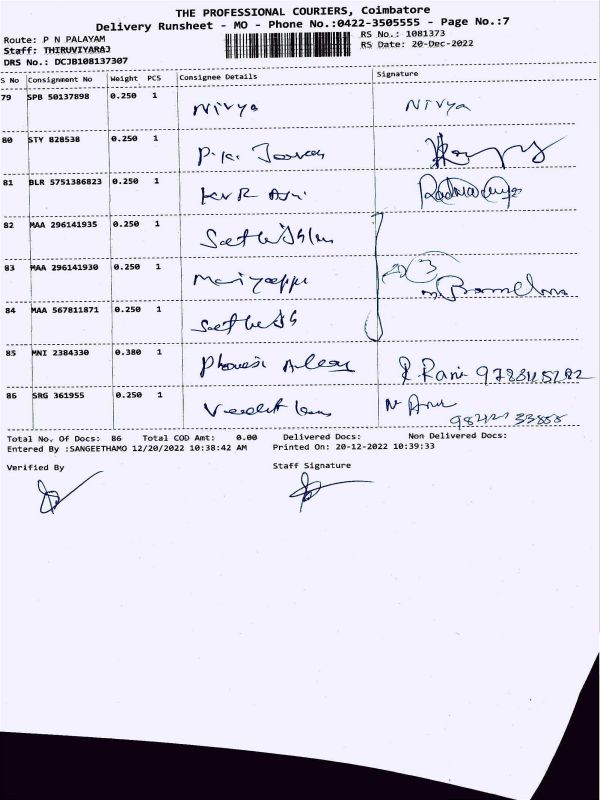 THE PROFESSIONAL COURIERS, Coimbatore
Delivery Runsheet - MO - Phone No.:0422-3505555 - Page No.:7
Route: P N PALAYAM
RS No.: 1081373
Staff: THIRUVIYARAJ
RS Date: 20-Dec-2022
DRS No.: DCJB108137307
S No Consignment No Weight PCS Consignee Details Signature
79 SPB 50137898 0.250 1 Nivya Nivya
80 STY 828538 0.250 1 P.K.
81 BLR 5751386823 0.250 1 KVR
82 MAA 296141935 0.250 1
83 MAA 296141930 0.250 1 3
84 MAA 567811871 0.250 1
85 MNI 2384330 0.380 1 R Rani
86 SRG 361955 0.250 1
Total No. Of Docs: 86 Total COD Amt: 0.00 Delivered Docs: Non Delivered Docs:
Entered By :SANGEETHAMO 12/20/2022 10:38:42 AM Printed On: 20-12-2022 10:39:33
Verified By Staff Signature